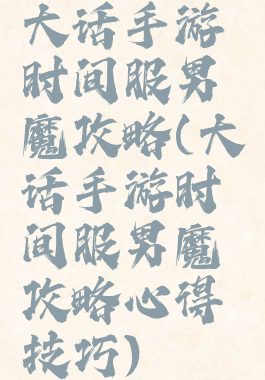 大话手游
时间服男
魔攻略(大
话手游时
间服男魔
攻略心得
技巧)